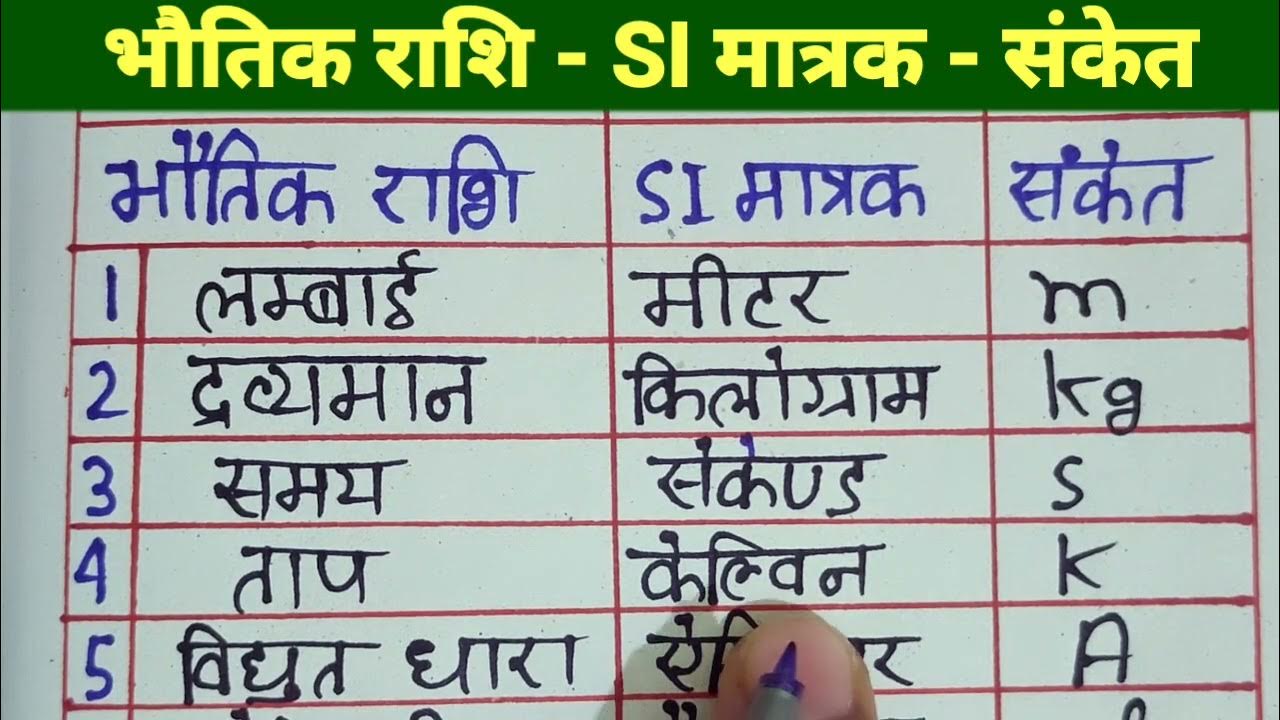 भौतिक राशि - SI मात्रक - संकेत
भौतिक राशि SI मात्रक संकेत
1 लम्बाई मीटर m
2 द्रव्यमान किलोग्राम kg
3 समय सेकेण्ड s
4 ताप केल्विन K
5 विद्युत धारा A